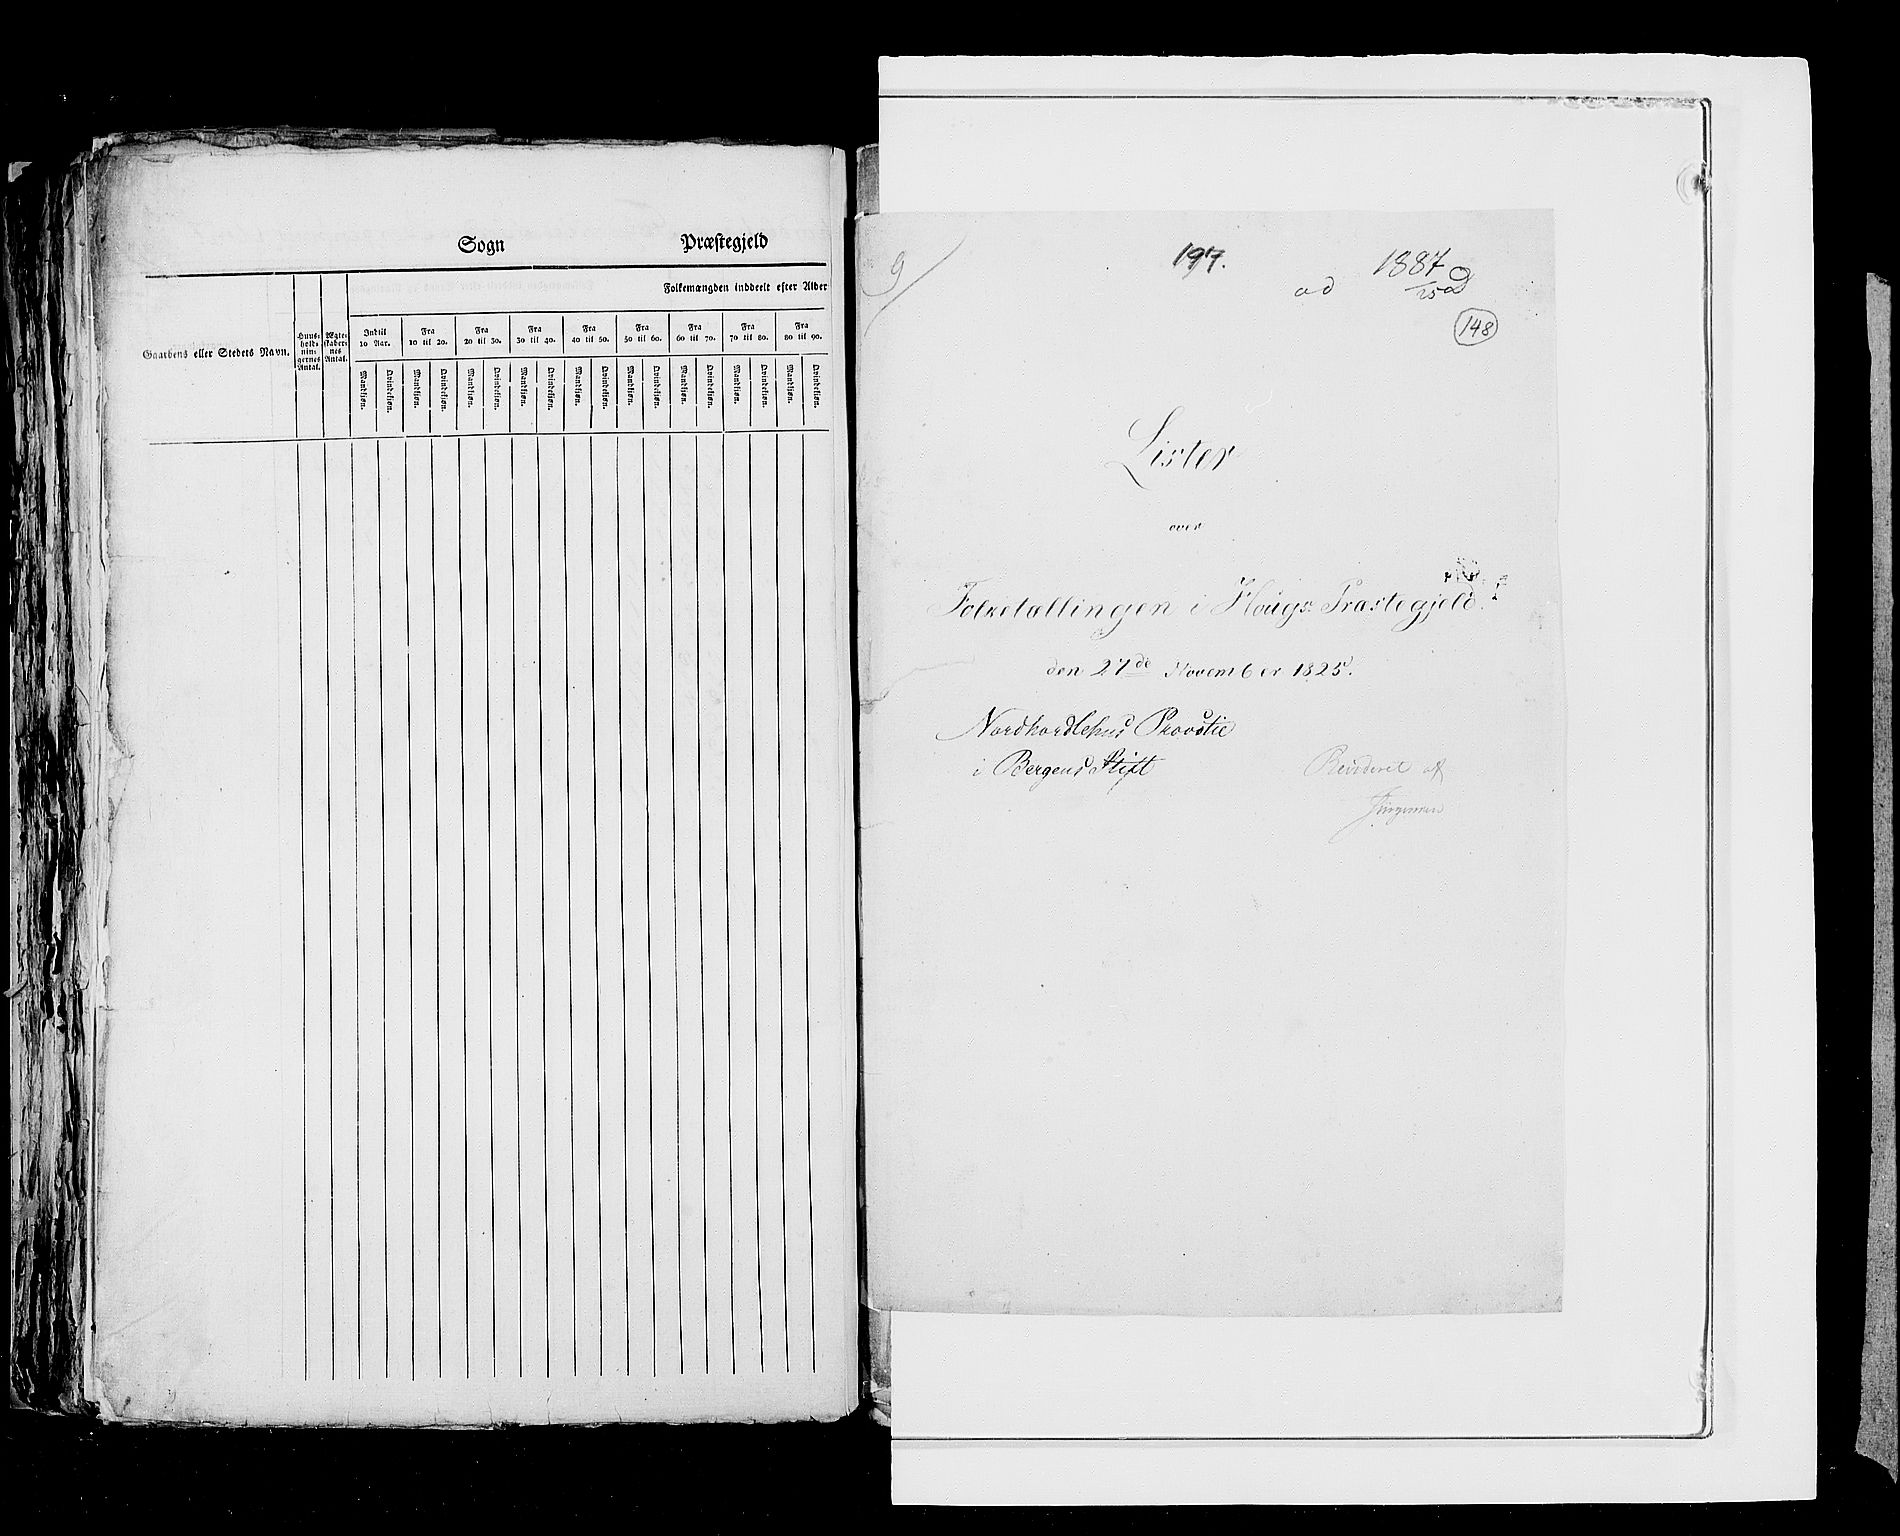 Sogn Præstegjeld
Folkemængden inddeelt efter Alder
Gaardens eller Stedets Navn.
Huus-
hold-
nin-
gernes
Antal.
Ægte-
skaber-
nes
Antal.
Indtil
10 Aar.
Fra
10 til 20.
Fra
20 til 30.
Fra
30 til 40.
Fra
40 til 50.
Fra
50 til 60.
Fra
60 til 70.
Fra
70 til 80.
Fra
80 til 90.
Mandkiøn. Qvindekiøn. Mandkiøn. Qvindekiøn. Mandkiøn. Qvindekiøn. Mandkiøn. Qvindekiøn. Mandkiøn. Qvindekiøn. Mandkiøn. Qvindekiøn. Mandkiøn. Qvindekiøn. Mandkiøn. Qvindekiøn. Mandkiøn. Qvindekiøn.
9/
197.
ad 1887/25
148
Lister
over
Folketællingen i Hougs Præstegjeld.
den 27de November 1825.
Nordhordlehns Provstie
i Bergens Stift
Revideret af